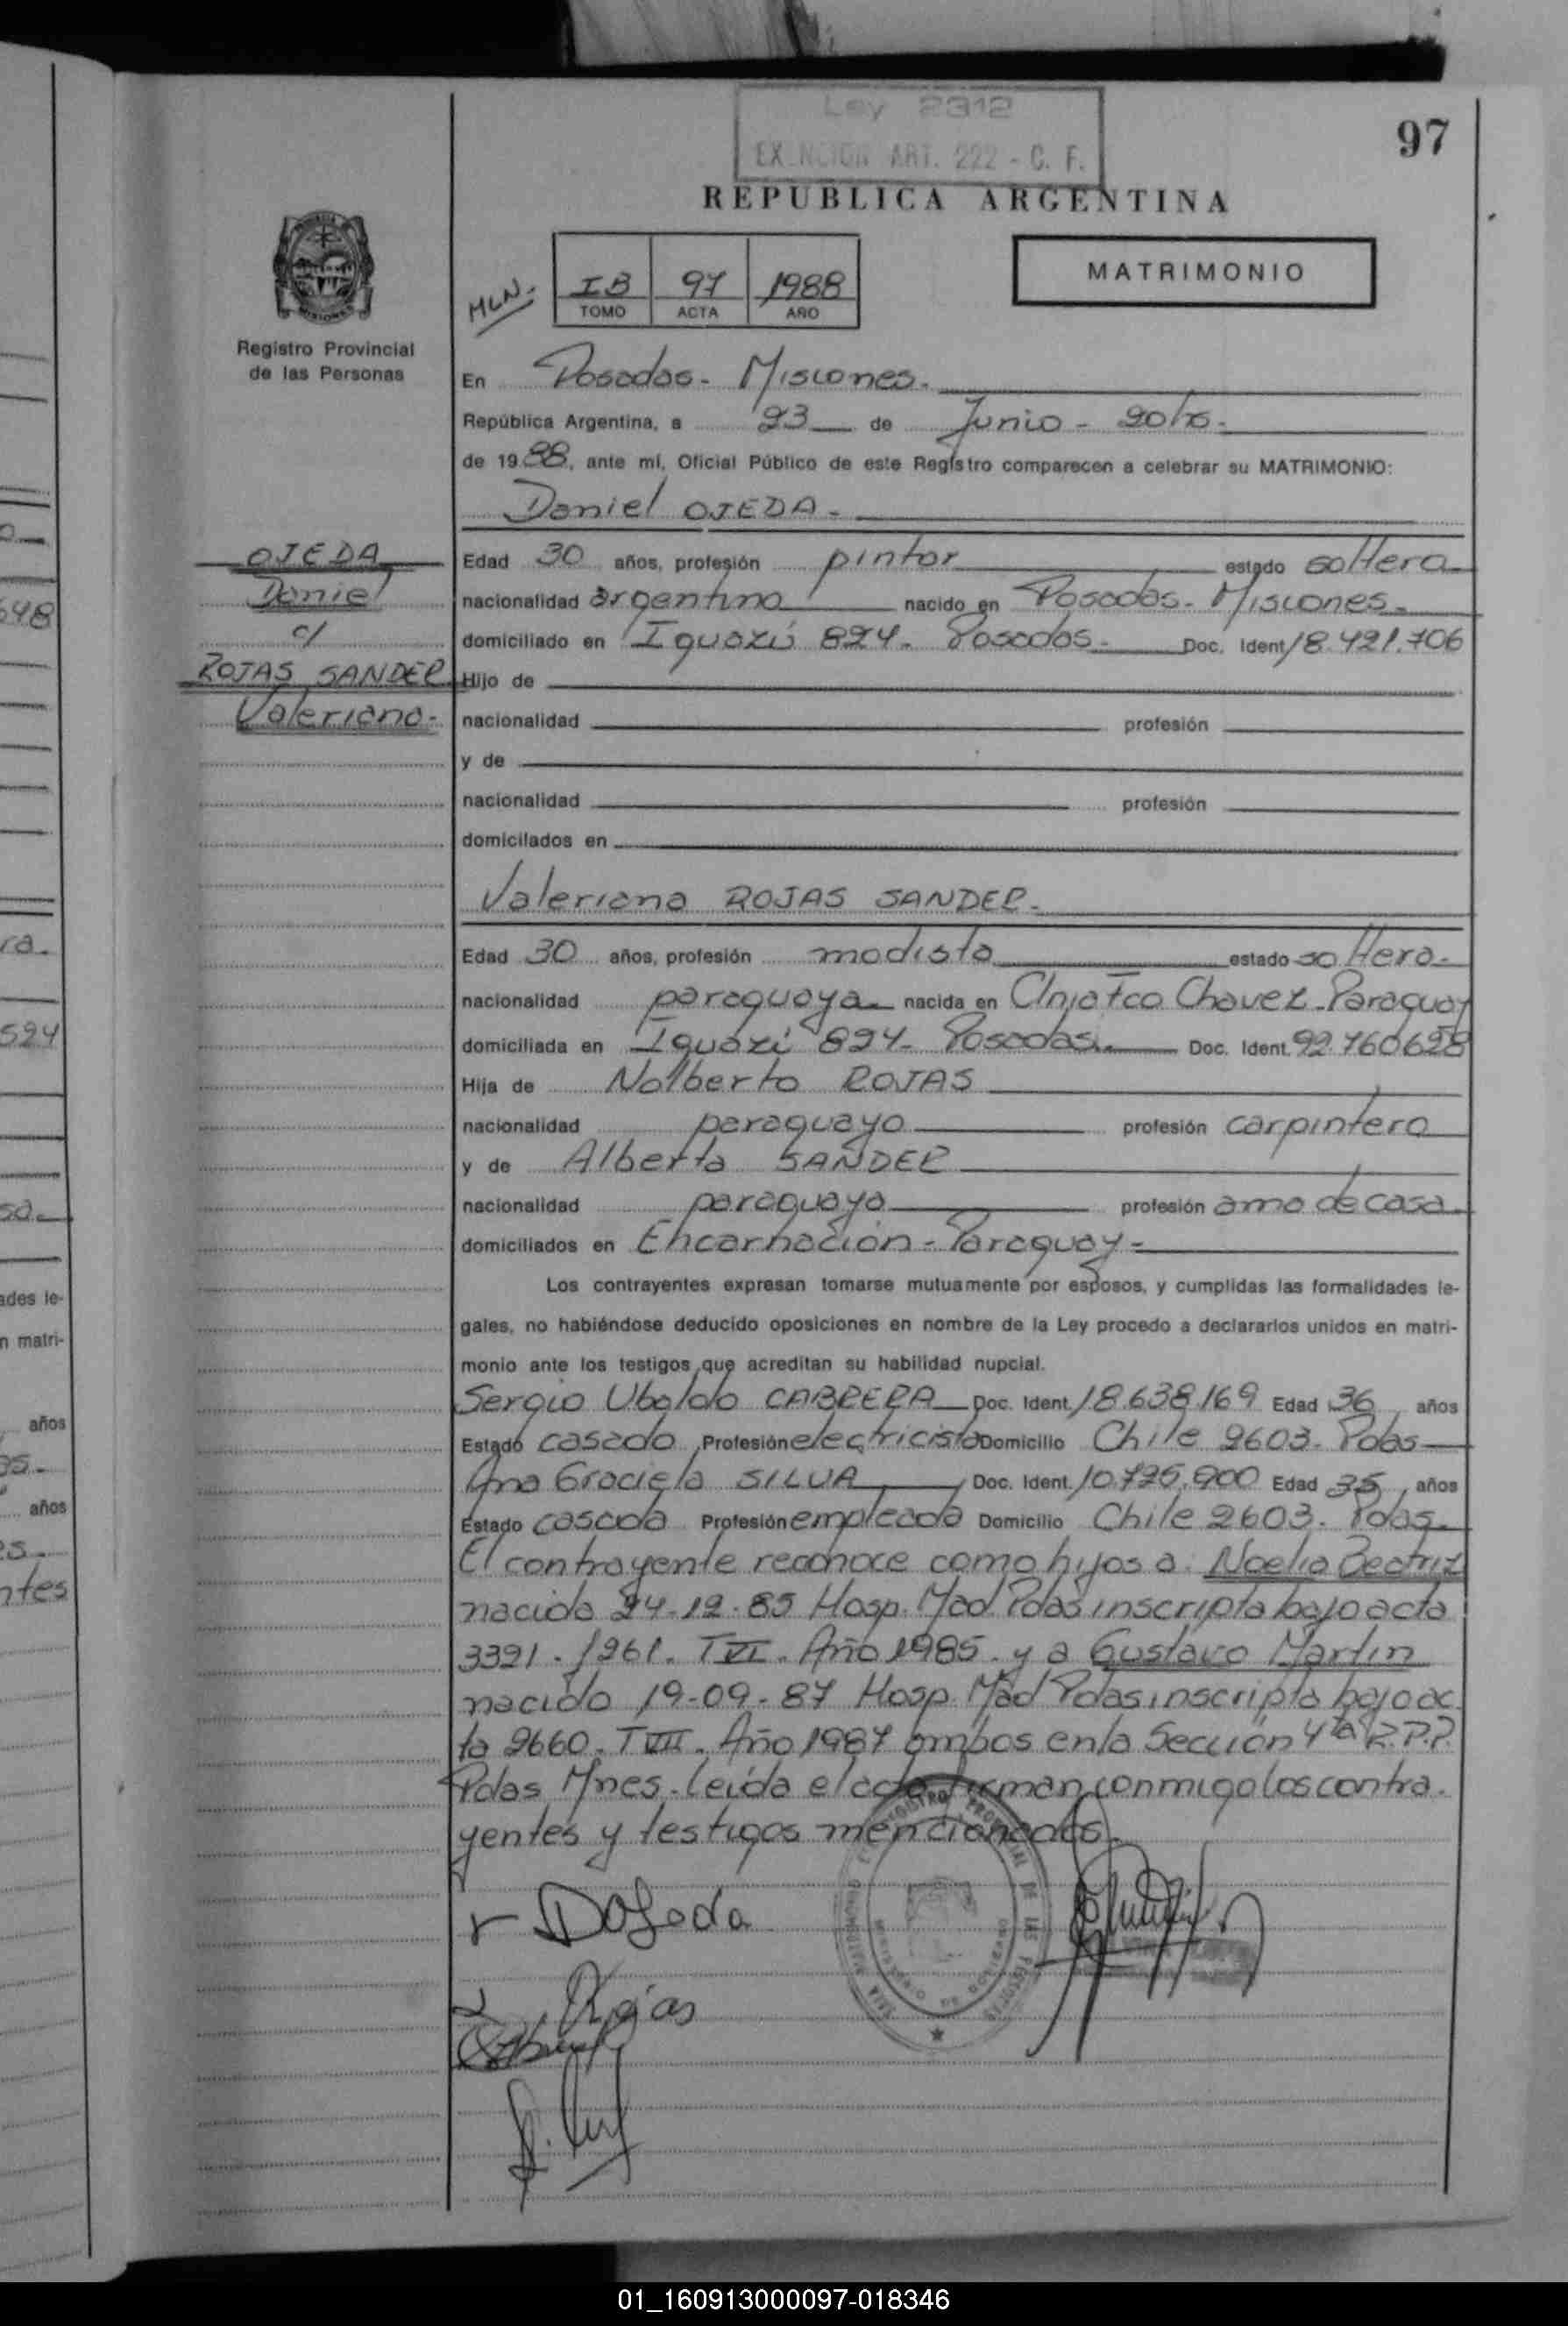 Ley 2312
EXENCION ART. 222 - C. F.
97
REPUBLICA ARGENTINA
MATRIMONIO
MLN.-
IB 97 1988
TOMO ACTA AÑO
Registro Provincial
de las Personas
En Posadas - Misiones.
República Argentina, a 23 de Junio - 20hs.
de 1988, ante mí, Oficial Público de este Registro comparecen a celebrar su MATRIMONIO:
Daniel OJEDA.
OJEDA
Daniel
c/
ROJAS SANDER
Valeriana.
Edad 30 años, profesión pintor estado soltero
nacionalidad argentino nacido en Posadas - Misiones.
domiciliado en Iguazú 824. Posadas. Doc. Ident 18.421.706
Hijo de
nacionalidad profesión
y de
nacionalidad profesión
domicilados en
Valeriana ROJAS SANDER.
Edad 30 años, profesión modista estado soltera.
nacionalidad paraguaya nacida en Clnia Fco Chavez - Paraguay
domiciliada en Iguazú 824 - Posadas. Doc. Ident. 92.760628
Hija de Nolberto ROJAS
nacionalidad paraguayo profesión carpintero
y de Alberta SANDER
nacionalidad paraguaya profesión ama de casa.
domiciliados en Encarnación - Paraguay -
Los contrayentes expresan tomarse mutuamente por esposos, y cumplidas las formalidades le-
gales, no habiéndose deducido oposiciones en nombre de la Ley procedo a declararlos unidos en matri-
monio ante los testigos que acreditan su habilidad nupcial.
Sergio Ubaldo CABRERA Doc. Ident. 18.638.169 Edad 36 años
Estado casado Profesión electricista Domicilio Chile 2603. Pdas
Ana Graciela SILVA Doc. Ident. 10.725.900 Edad 35 años
Estado casada Profesión empleada Domicilio Chile 2603. Pdas.
El contrayente reconoce como hijos a: Noelia Beatriz
nacida 24-12-85 Hosp. Mad. Pdas inscripta bajo acta
3321. 1261. T VI. Año 1985. y a Gustavo Martin
nacido 19-09-87 Hosp. Mad Pdas inscripta bajo ac
ta 2660. T VII. Año 1987 ambos en la Sección 4ta R.P.P.
Pdas Mnes. leída el acta firman conmigo los contra.
yentes y testigos mencionados.
DOJeda
Rojas
648
524
ades le-
n matri-
años
años
ntes
01_160913000097-018346